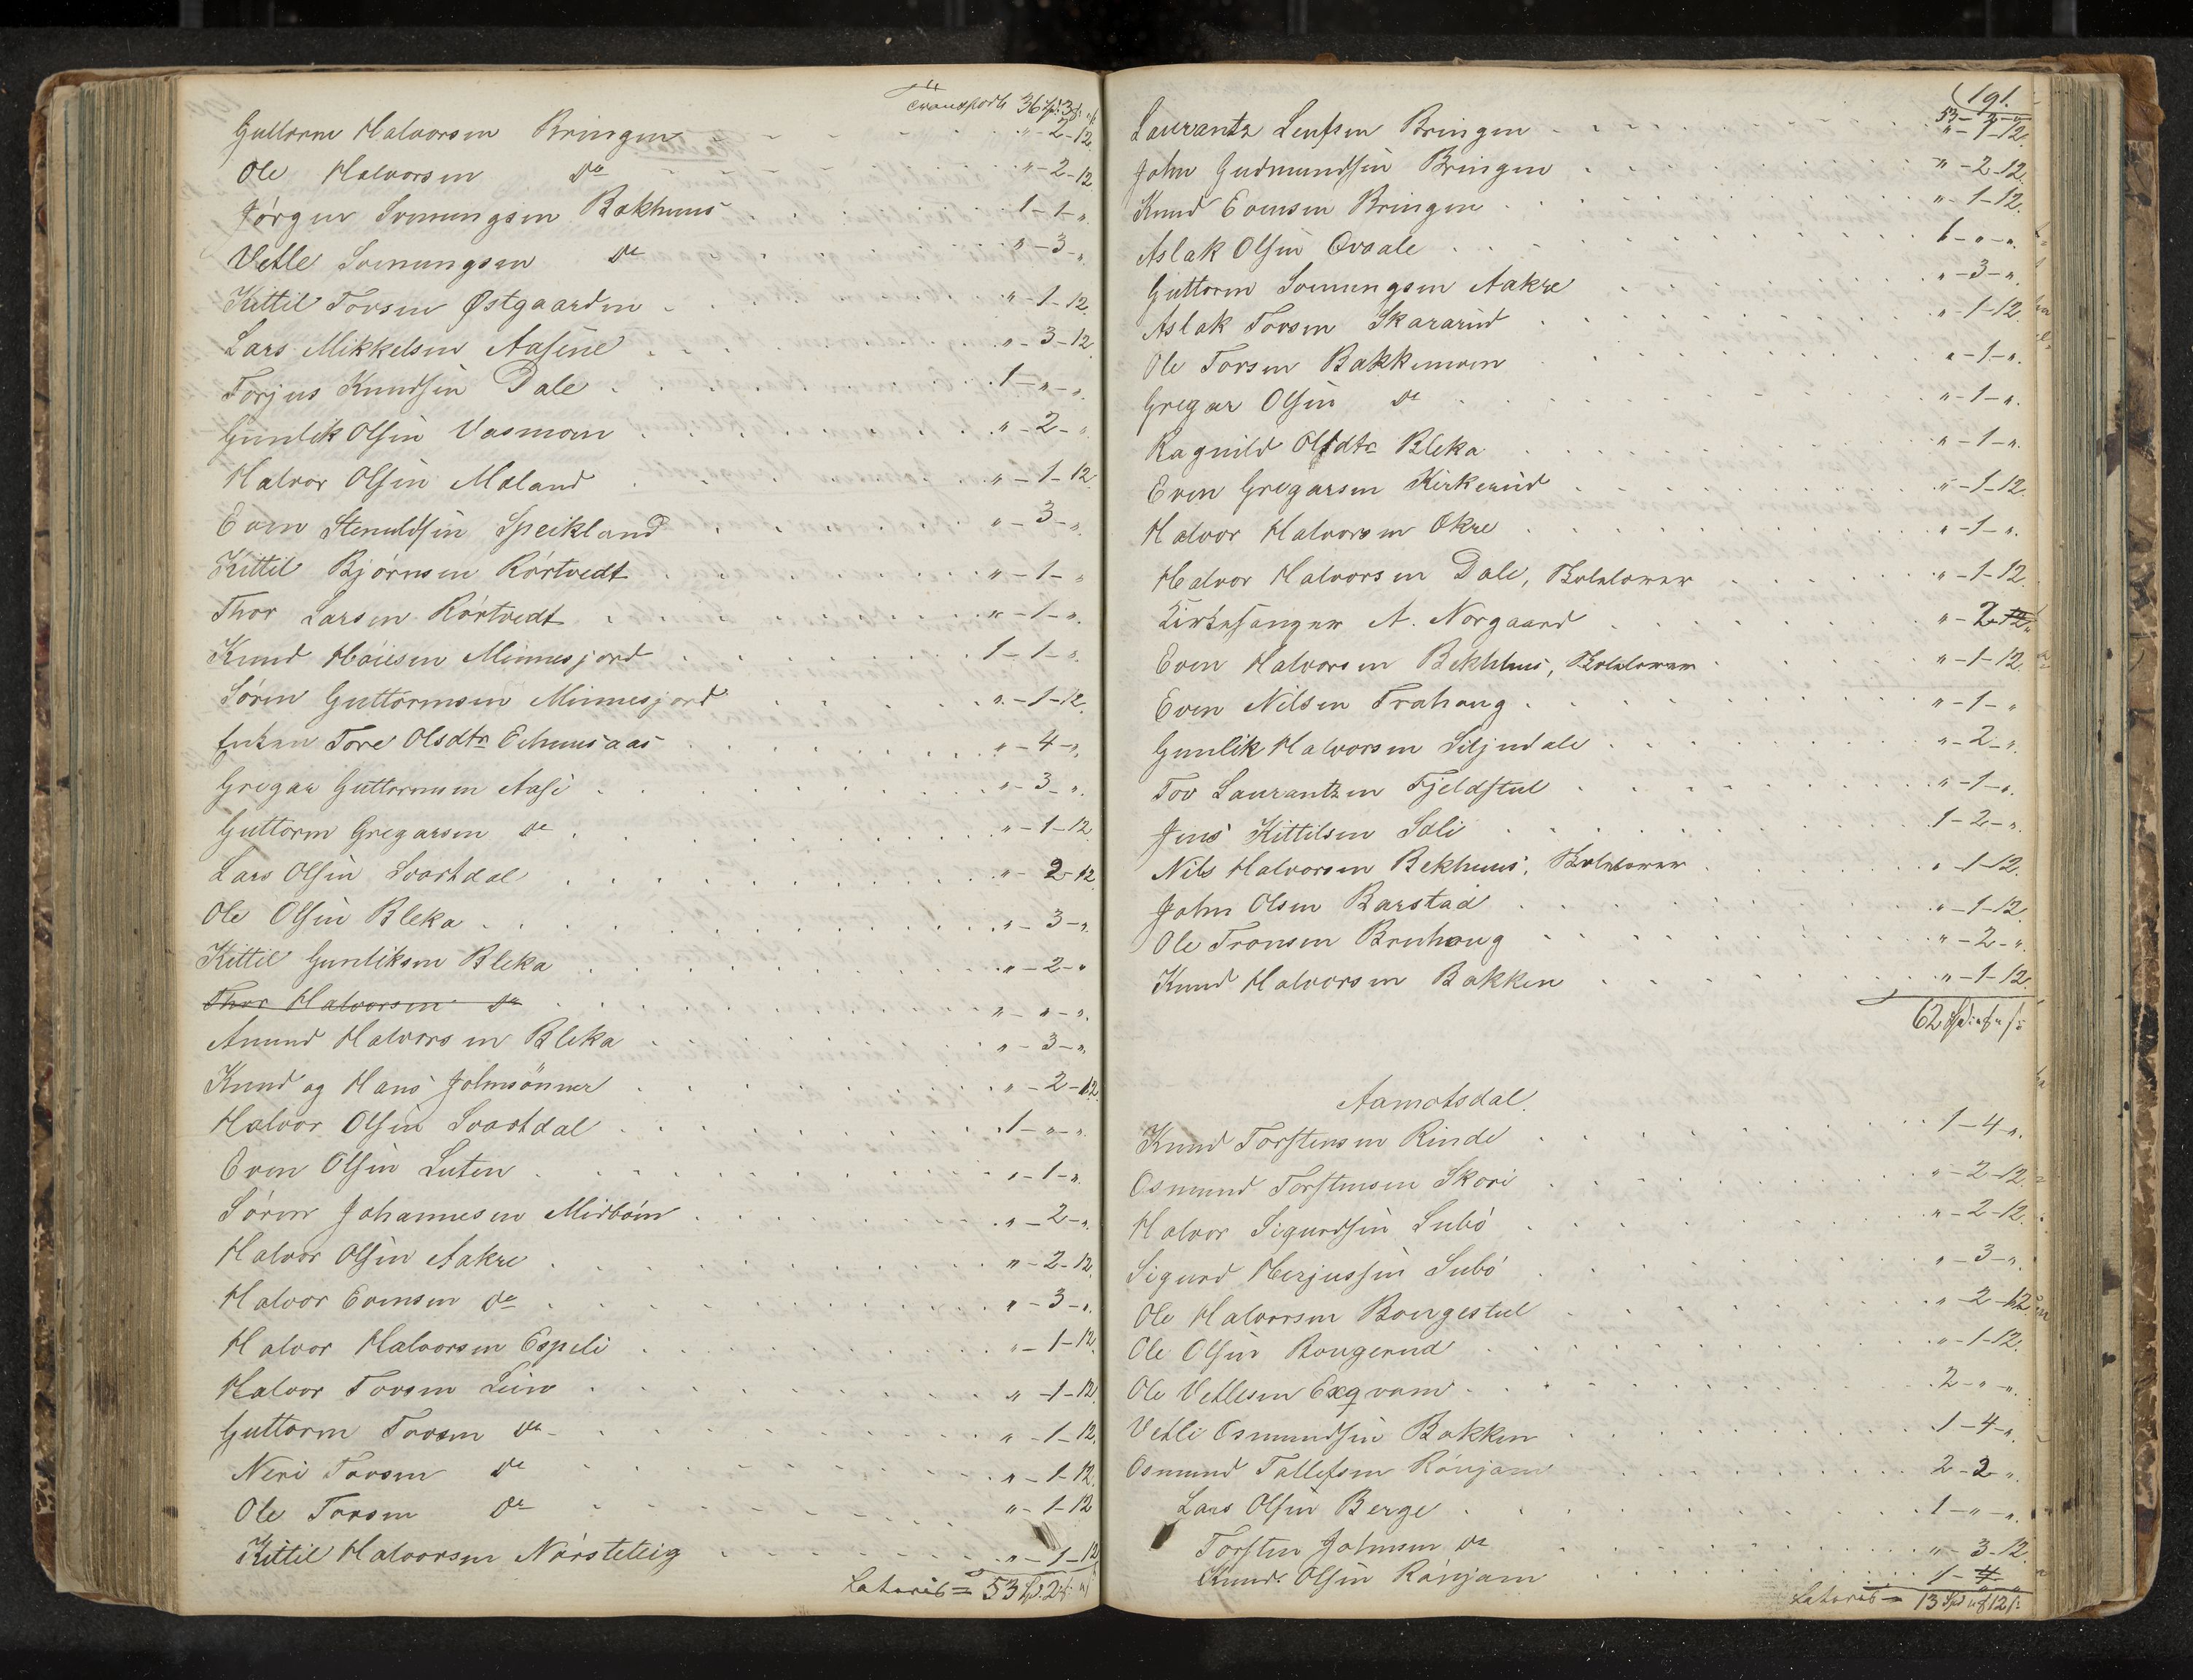 Transport 36 Spd. 3 " "
Guttorm Halvorsen Bringen " - 2 - 12.
Ole Halvorsen do " - 2 - 12.
Jørgen Svenungsen Bakhuus 1 - 1 - ".
Vetle Svenungsen do " - 3 - ".
Kittil Tovsen Østgaarden " - 1 - 12.
Lars Mikkelsen Aasene " - 3 - 12
Torjus Knudsen Dale 1 - " - ".
Gunlek Olsen Vasmoen " - 2 - "
Halvor Olsen Mæland " - 1 - 12.
Even Stenuldsen Speikland " - 3 - ".
Kittil Bjørnsen Rørtvedt " - 1 - "
Thor Larsen Rørtvedt " - 1 - ".
Knud Høiesen Minnesjord 1 - 1 - ".
Søren Guttormsen Minnesjord " - 1 - 12.
Enken Tore Olsdtr " - 4 - ".
Gregar Guttormsen Aase " - 3 - ".
Guttorm Gregarsen do " - 1 - 12
Lars Olsen Svartdal " - 2 - 12.
Ole Olsen Bleka " - 3 - ".
Kittil Gunleksen Bleka " - 2 - "
Thor Halvorsen do " - " - ".
Amund Halvorsen Bleka " - 3 - ".
Knud og Hans Johnsönner " - 2 - 12.
Halvor Olsen Svartdal 1 - " - ".
Even Olsen Luten " - 1 - ".
Søren Johannesen Midbøen " - 2 - ".
Halvor Olsen Aakre " - 2 - 12.
Halvor Evensen do " - 3 - ".
Halvor Halvorsen Espeli " - 1 - 12.
Halvor Tovsen Lien " - 1 - 12.
Guttorm Tovsen do " - 1 - 12.
Neri Tovsen do " - 1 - 12.
Ole Tovsen do " - 1 - 12
Kittil Halvorsen Nørsteteig " - 1 - 12
Lateris = 53 Spd. 2 " "
191.
53 - 2 - "
Laurantz Leufsen Bringen " - 1 - 12.
John Gudmundsen Bringen " - 2 - 12.
Knud Evensen Bringen " - 1 - 12.
Aslak Olsen Ovaale 1 - " - ".
Guttorm Svenungsen Aakre " - 3 - ".
Aslak Tovsen Skararud " - 1 - 12.
Ole Torsen Bakkemoen " - 1 - ".
Gregar Olsen do " - 1 - ".
Ragnild Olsdtr Bleka " - 1 - ".
Even Gregarsen Kirkerud " - 1 - 12.
Halvor Halvorsen Økre " - 1 - ".
Halvor Halvorsen Dale, Skolelærer " - 1 - 12.
Kirkesanger A. Norgaard " - 2 - "
Even Halvorsen Bekhhus, Skolelærer " - 1 - 12.
Even Nilsen Trahaug " - 1 - "
Gunlik Halvorsen Siljudale " - 2 - ".
Tov Laurantzen Fjeldstul " - 1 - ".
Jens Kittilsen Sæli 1 - 2 - ".
Nils Halvorsen Bekhuus, Skolelærer " - 1 - 12.
John Olsen Barstad " - 1 - 12.
Ole Tronsen Bruhaug " - 2 - ".
Knud Halvorsen Bakken " - 1 - 12.
62 Spd. " "
Aamotsdal.
Knud Torstensen Rinde 1 - 4 - ".
Osmund Torstensen Skori " - 2 - 12.
Halvor Sigurdsen Subø " - 2 - 12.
Sigurd Herjussen Subø " - 3 - ".
Ole Halvorsen Bougestul " - 2 - 12
Ole Olsen Bougerud " - 1 - 12.
Ole Vetlesen 2 - " - ".
Vetle Osmundsen Bakken 1 - 4 - ".
Osmund Tallefsen Rønjom 2 - 2 - ".
Lars Olsen Berge 1 - " - ".
Torsten Johnsen do " - 3 - 12.
Knud Olsen Rønjom 1 - 4 -
Lateris = 13 Spd " 12